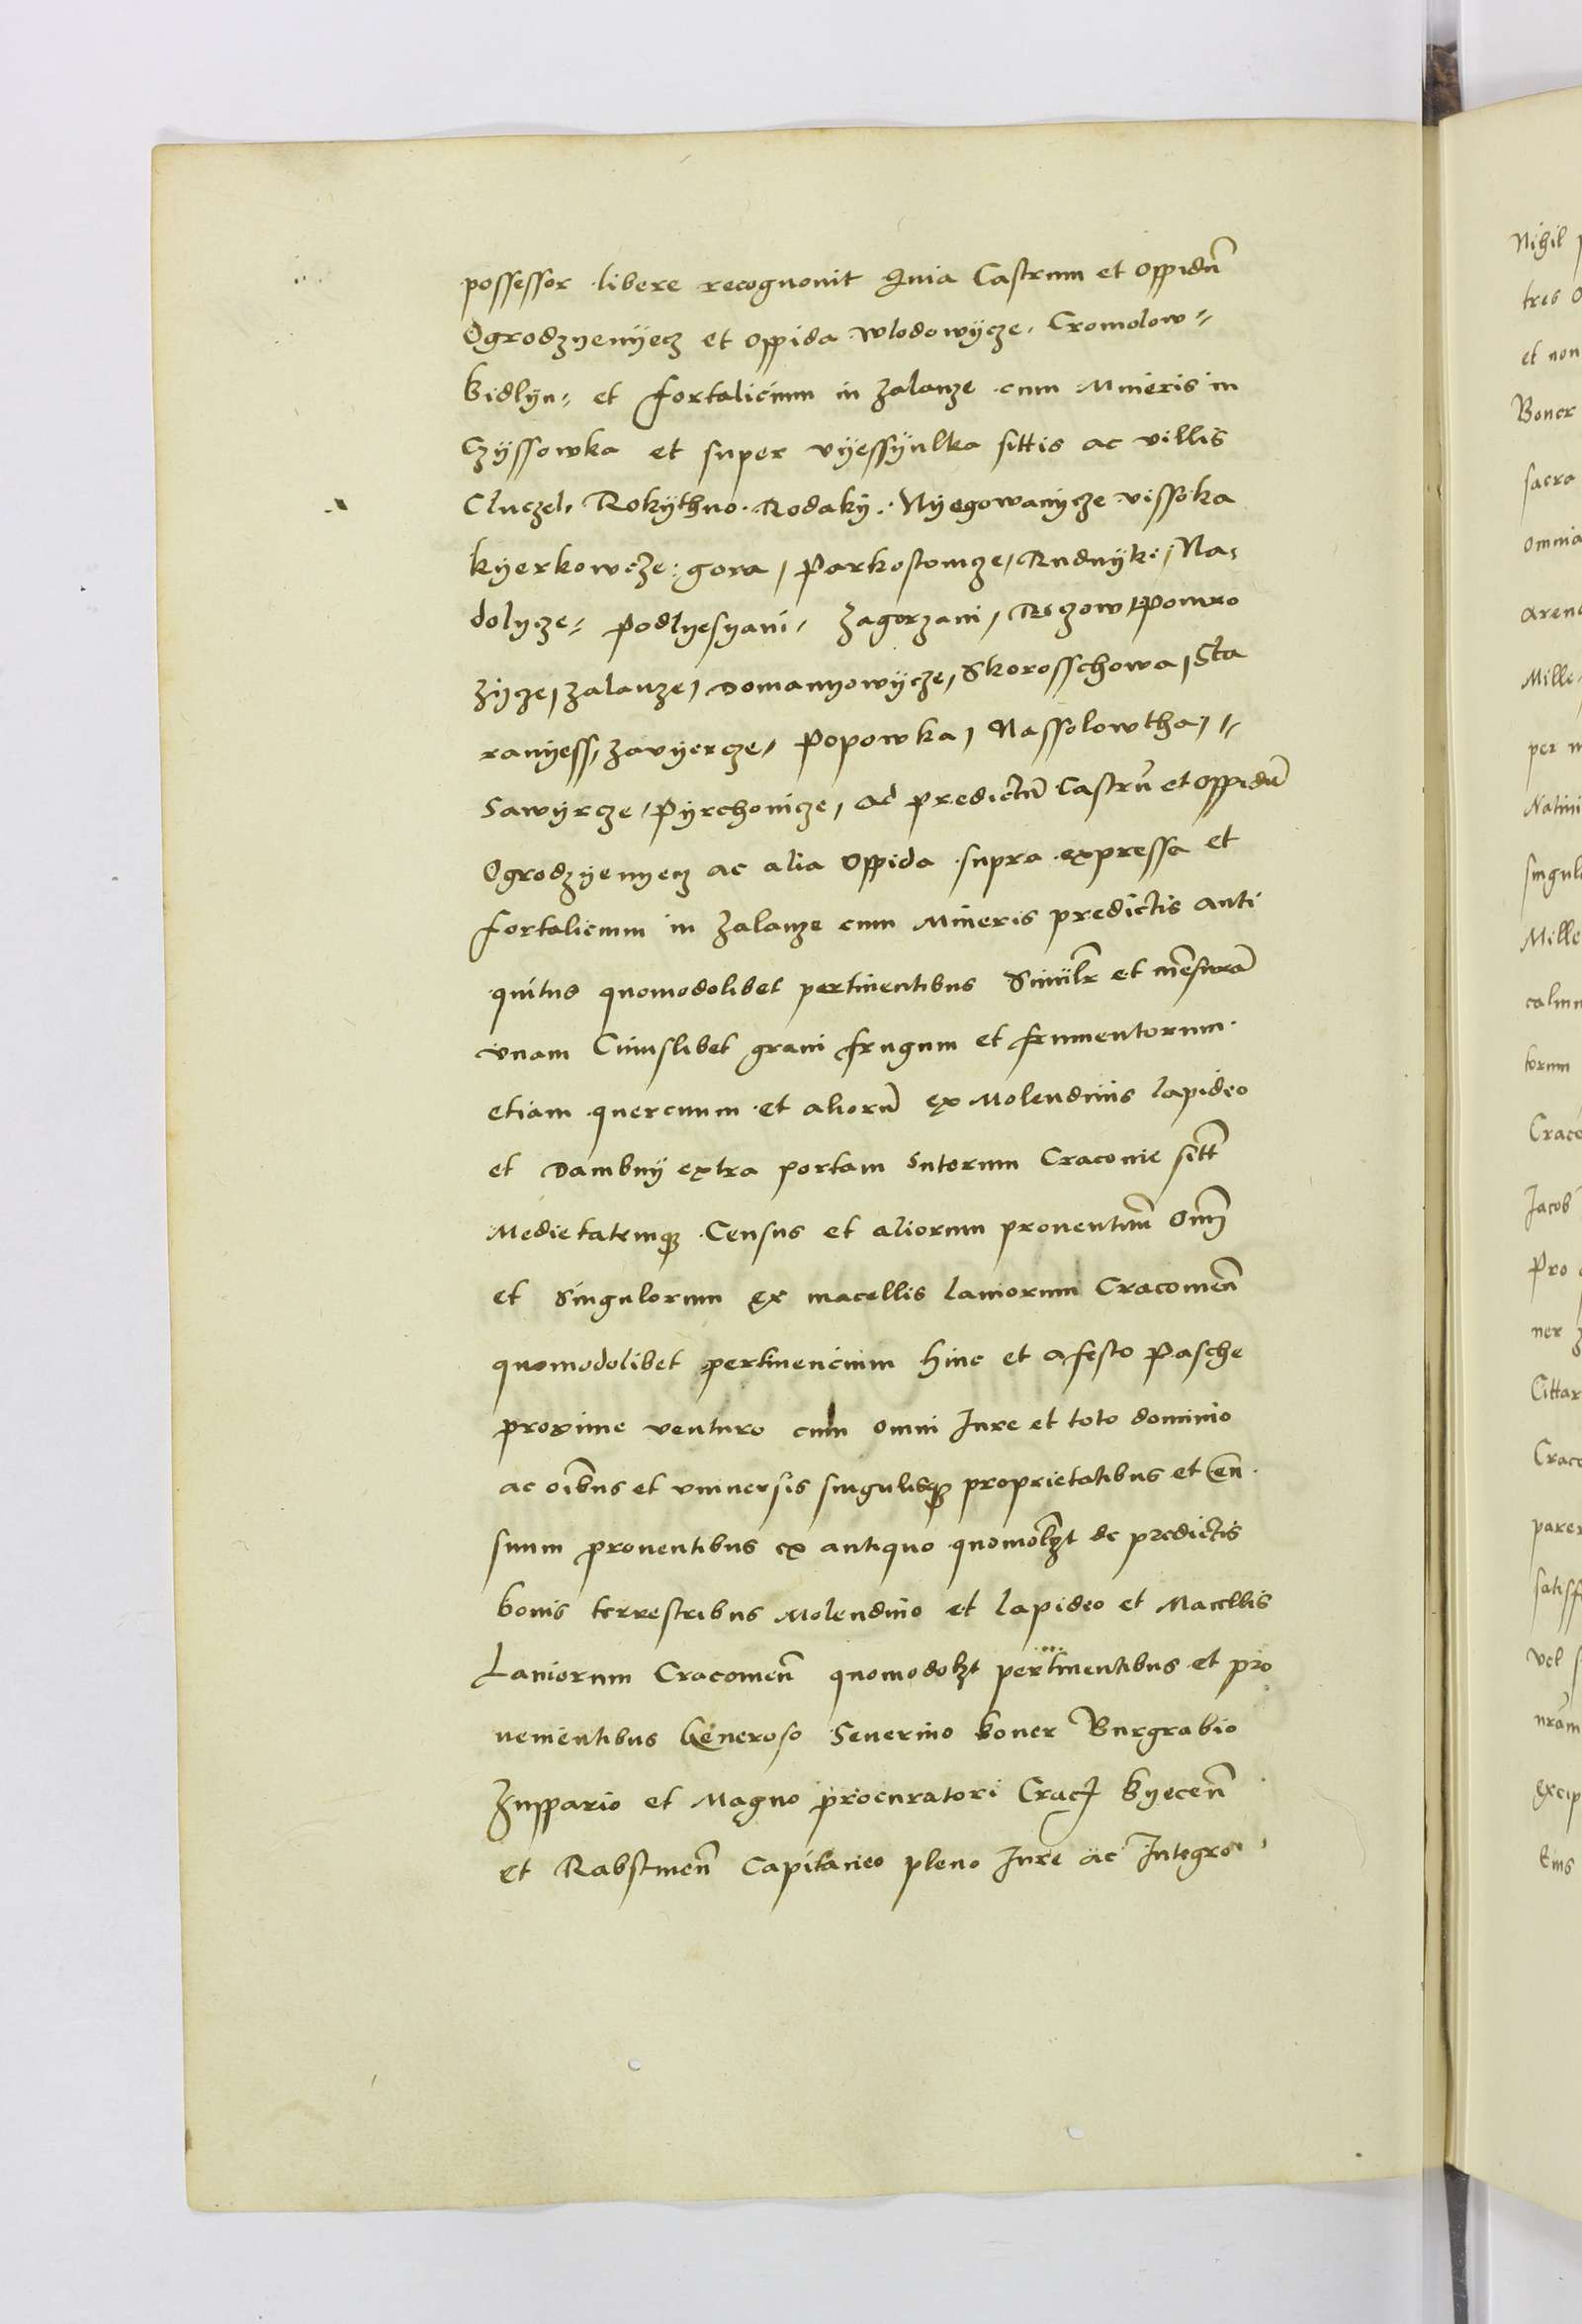 possessor libere recognovit Quia Castrum et oppidū
Ogrodzyenyecz et oppida wlodowycze, Cromolow
kidlyn et fortalicium in Zalanze cum Mineris in
Czyssowka et super vyessyulka sittis ac villis
Cluczel, Rokythno. Rodaky. Nyegowanycze vissoka
kyerkowcze: gora, Parkostowicze, Rudnyki, Na
dolycze Podlyesyani, Zagorzani, Rczow, Pomro
zycze, Zalanze, Domanyowycze, Skorosschowa, Sta
ravyess, Zavyercze, Popowka, Nassolowtha,
Sawyrcze, Pyrchonicze, ad predictū Castrū et oppidū
Ogrodzyenyecz ac alia oppida supra expressa et
fortalicium in Zalanze cum Mineris predictis anti
quitus quomodolibet pertinentibus Similr et mēsurā
vnam Cuiuslibet grani frugum et frumentorum
etiam quercuum et aliorū ex Molendinis lapideo
et Dambny extra portam Sutorum Craconie sitt
Medietatemqz Census et aliorum prouentuū Omī
et Singulorum ex macellis laniorum Cracomeñ
quomodolibet pertinencium hinc et a festo Pasche
proxime venturo cum omni Jure et toto dominio
ac oībus et vniuersis singulisqz proprietatibus et Cen
suum prouentibus ex antiquo quomolzt de predictis
bonis terrestribus Molendino et lapideo et Macellis
Laniorum Cracomeñ quomodolzt pertinentibus et pro
uenientibus Generoso Seuerino boner Burgrabio
Zuppario et Magno procuratori Crac byeceñ
et Rabstineñ Capitaneo pleno Jure ac Integro
Nihil
tres
et non
Boner
sacra
omnia
aren
Mille
per
Natiui
singul
Mille
calum
torum
Craco
Jacob
Pro
ner
Cittar
Crac
parer
satisf
vel
nram
excip
Eius